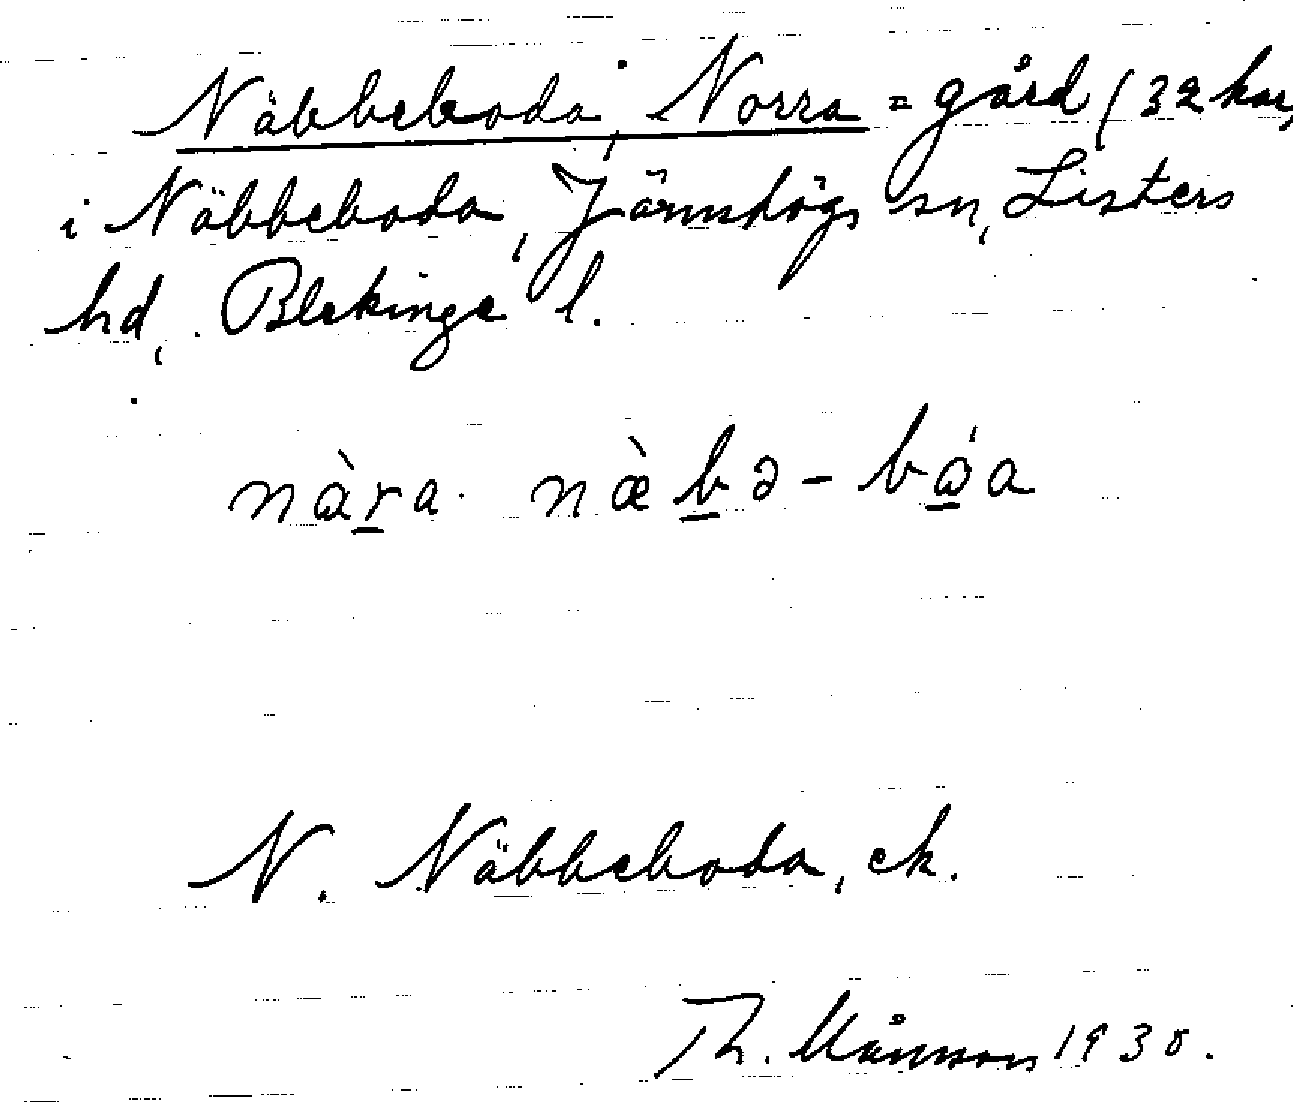 Näbbeboda, Norra = gård (32 har,
i Näbbeboda, Jämshögs sn, Listers
hd, Blekinge l.
nàra næ̀bə-bóa
N. Näbbeboda, ek.
Th. Månsson 1930.